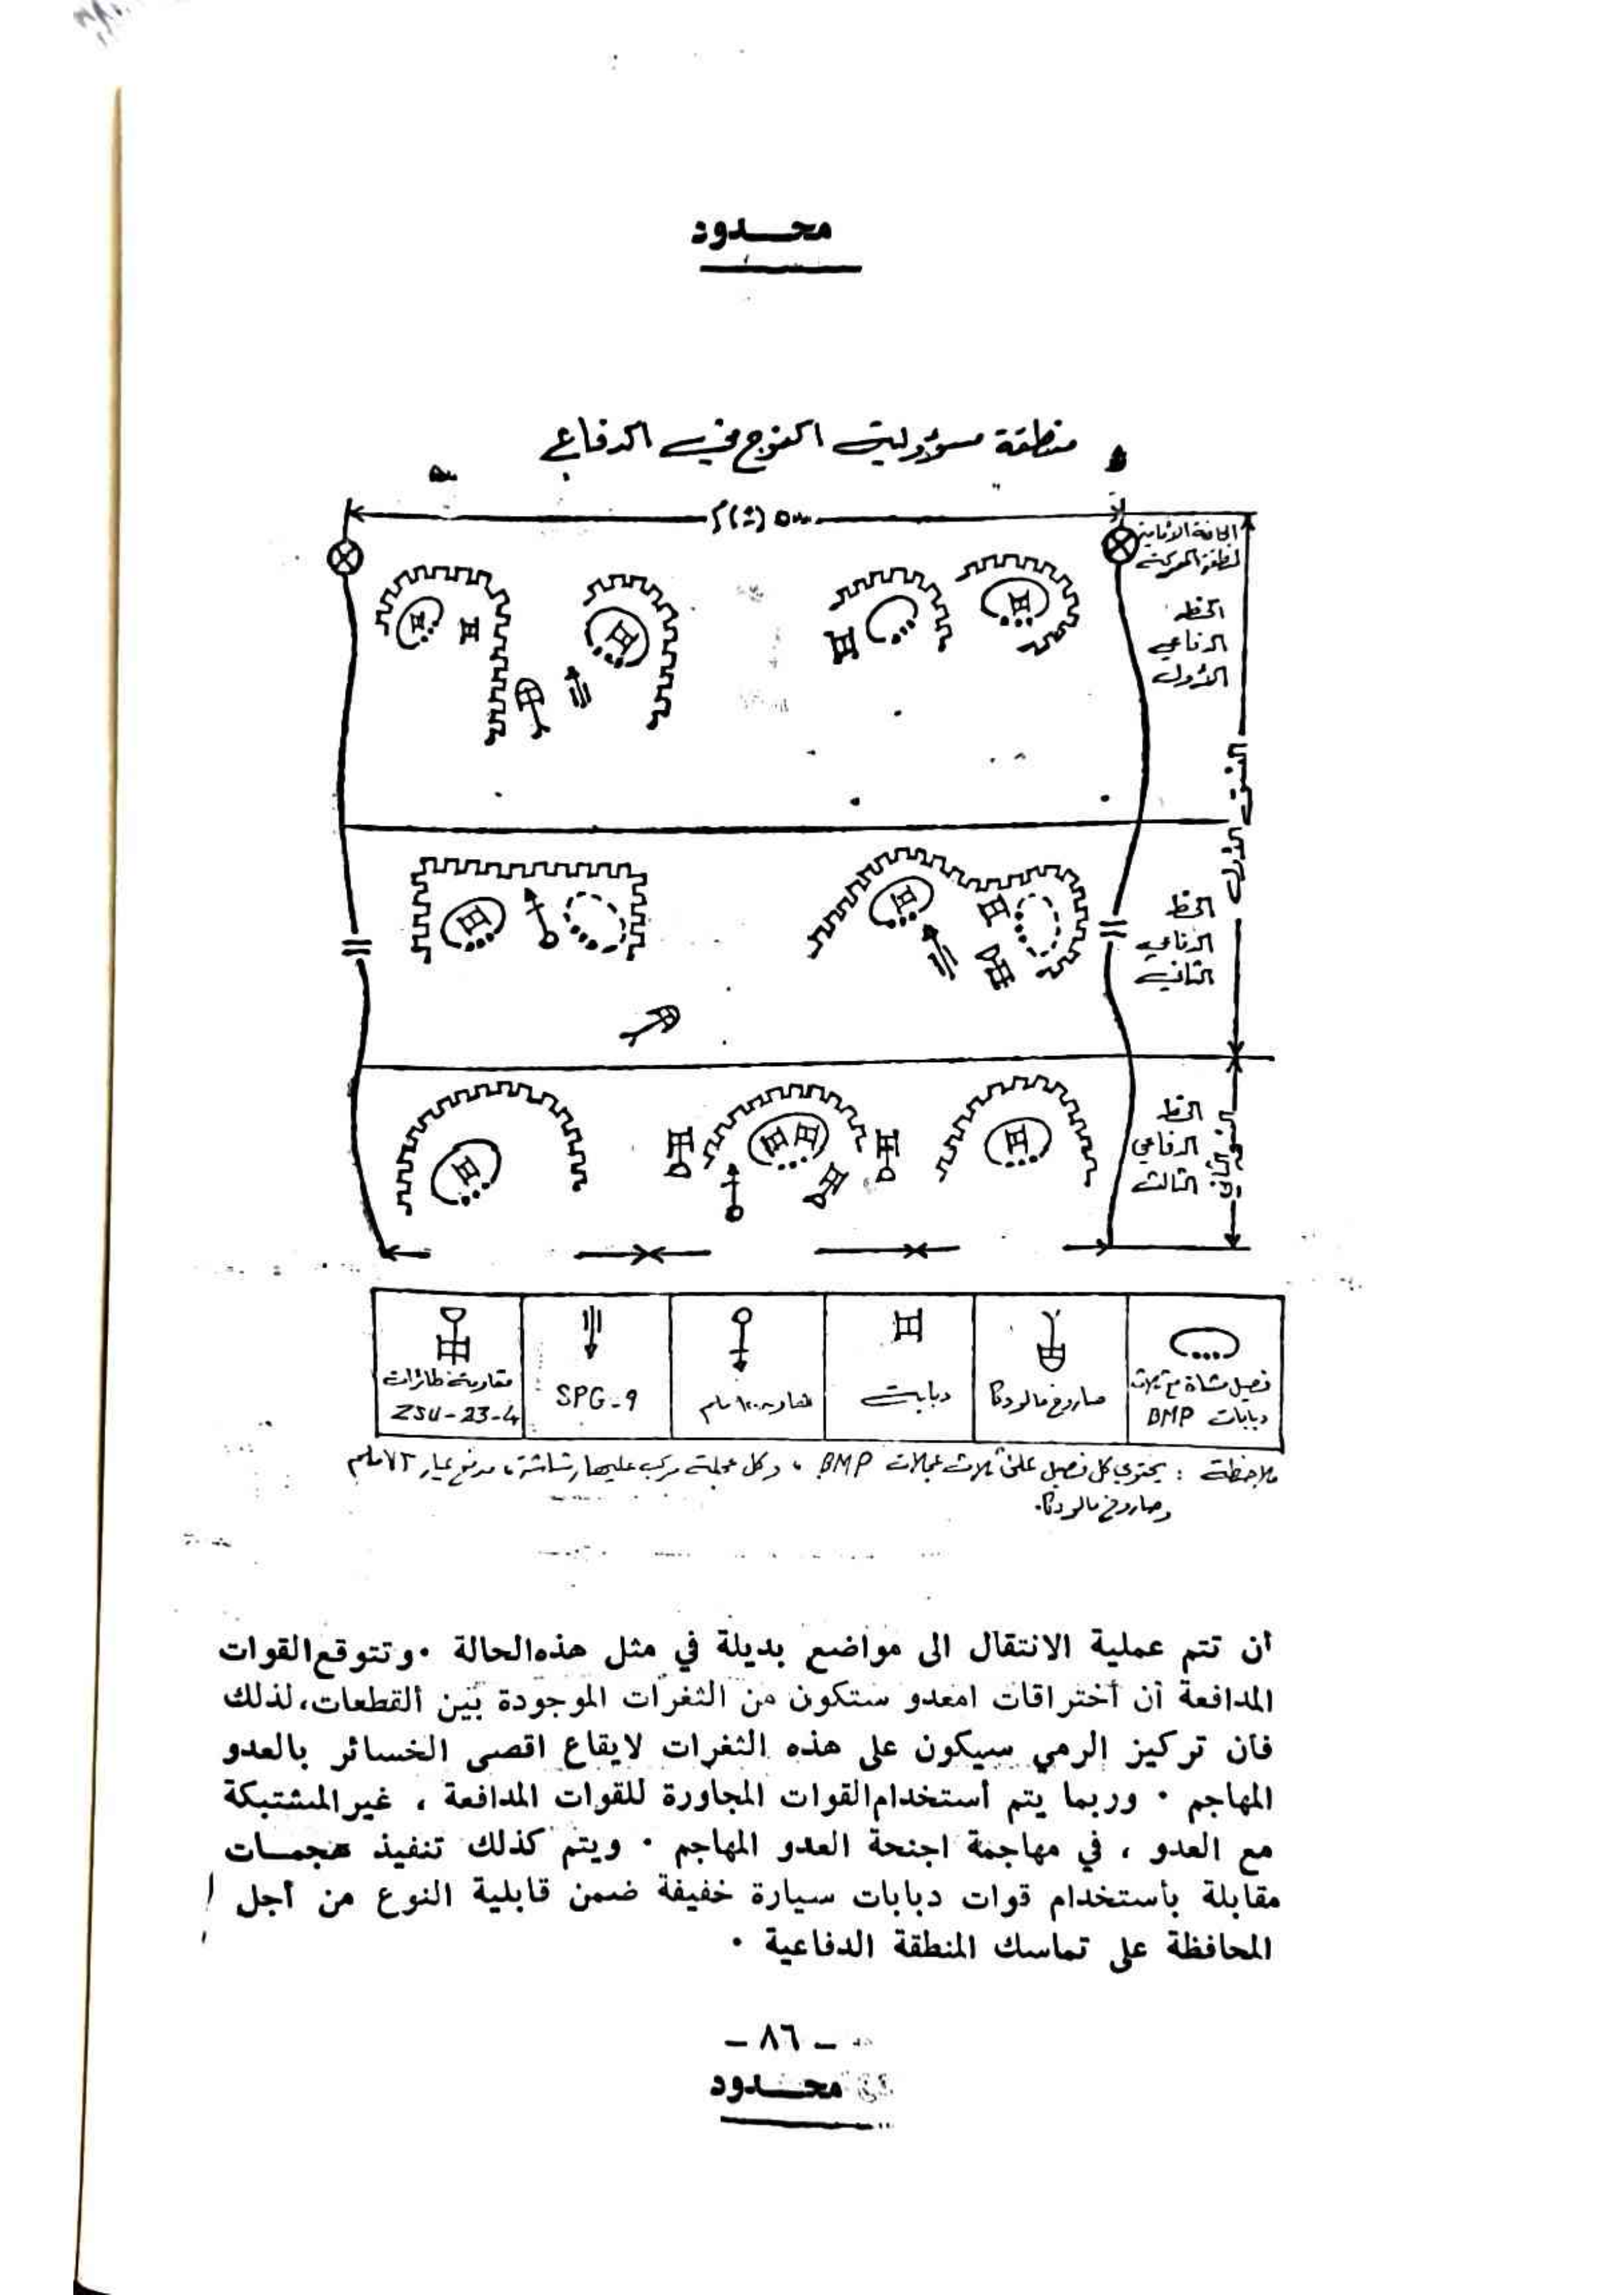 محــدود
منطقة مسؤولية الفوج في الدفاع
٥٠٠٠ (±) م
الحافة الأمامية
لمنطقة المعركة
الخط
الدفاعي
الأول
النسق الأول
الخط
الدفاعي
الثاني
الخط
الدفاعي
الثالث
النسق الثاني
فصيل مشاة مع ثلاث
دبابات BMP
صاروخ مالودكا
دبابة
SPG-9
مقاومة طائرات
ZSU-23-4
ملاحظة : يحتوي كل فصيل على ثلاث عجلات BMP ، وكل عجلة مركب عليها رشاشة، مدفع عيار
وصاروخ مالودكا.
أن تتم عملية الانتقال الى مواضع بديلة في مثل هذه الحالة ٠ وتتوقع القوات
المدافعة أن أختراقات امعدو ستكون من الثغرات الموجودة بين القطعات، لذلك
فأن تركيز الرمي سيكون على هذه الثغرات لايقاع اقصى الخسائر بالعدو
المهاجم ٠ وربما يتم أستخدام القوات المجاورة للقوات المدافعة ، غير المشتبكة
مع العدو ، في مهاجمة اجنحة العدو المهاجم ٠ ويتم كذلك تنفيذ هجمــات
مقابلة بأستخدام قوات دبابات سيارة خفيفة ضمن قابلية النوع من أجل
المحافظة على تماسك المنطقة الدفاعية ٠
- ٨٦ -
محــدود